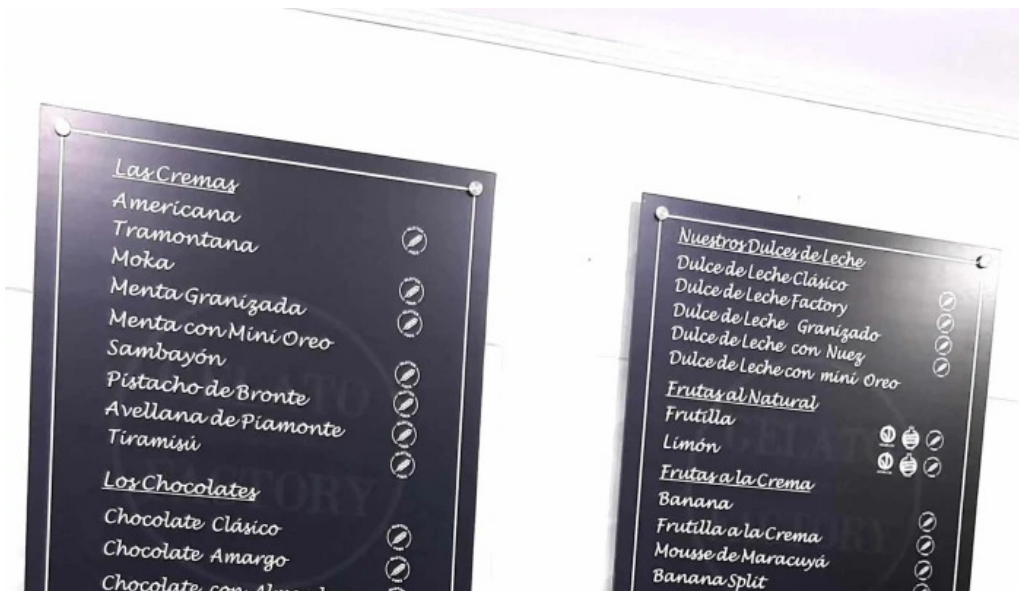 Las Cremas
Americana
Tramontana
Moka
Menta Granizada
Menta con Mini Oreo
Sambayón
Pistacho de Bronte
Avellana de Piamonte
Tiramisú
Los Chocolates
Chocolate Clásico
Chocolate Amargo
Chocolate con
GELATO
FACTORY
Nuestros Dulces de Leche
Dulce de Leche Clásico
Dulce de Leche Factory
Dulce de Leche Granizado
Dulce de Leche con Nuez
Dulce de Leche con mini Oreo
Frutas al Natural
Frutilla
Limón
Frutas a la Crema
Banana
Frutilla a la Crema
Mousse de Maracuyá
Banana Split
GELATO
FACTORY